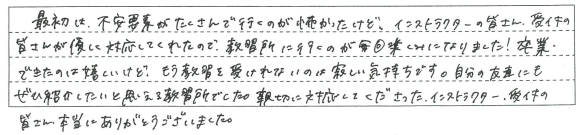 最初は、不安要素がたくさんで行くのが怖かったけど、インストラクターの皆さん、受付の
皆さんが優しく対応してくれたので、教習所に行くのが毎回楽しみになりました！卒業
できたのは嬉しいけど、もう教習を受けれないのは寂しい気持ちです。自分の友達にも
ぜひ紹介したいと思える教習所でした。親切に対応してくださった、インストラクター、受付の
皆さん本当にありがとうございました。